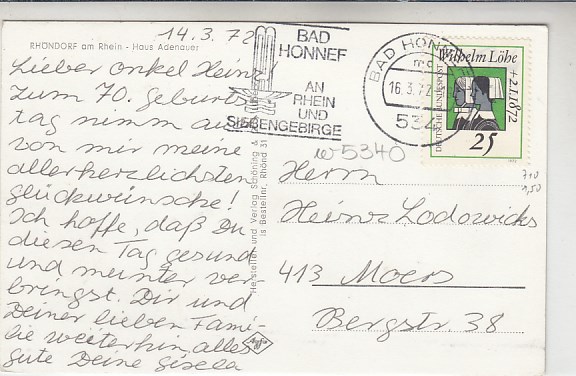 14.3.72
RHÖNDORF am Rhein - Haus Adenauer
Lieber Onkel Heinz!
Zum 70. Geburts
tag nimm auch
von mir meine
allerherzlichsten
glückwünsche!
Ich hoffe, daß Du
diesen Tag gesund
und munter ver
bringst. Dir und
Deiner lieben Fami-
lie weiterhin alles
gute Deine Gisela
BAD
HONNEF
AN
RHEIN
UND
SIEBENGEBIRGE
BAD HONNEF
mc
16.3.72
534
Wilhelm Löhe
+2.1.1872
DEUTSCHE BUNDESPOST
25
1972
w5340
710
1,50
Hersteller und Verlag Schöning &
is Bestellnr. Rhönd 31
Agfa
Herrn
Heinz Lodowicks
413 Moers
Bergstr. 38